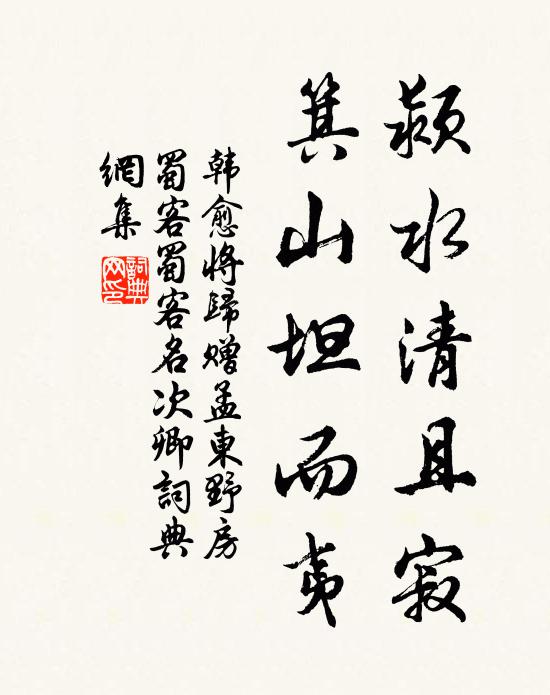 颍水清且寂
箕山坦而夷
韩愈将歸赠孟東野房
蜀客蜀客名次卿詞典
網集
詞典網印